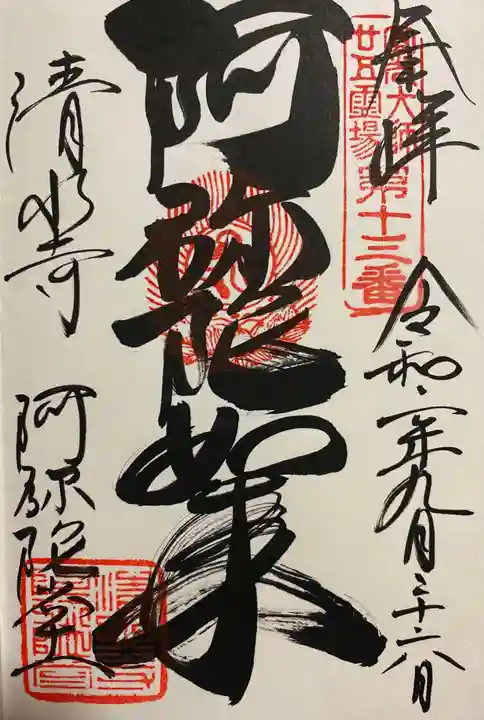 奉拝
圓光大師
廿五靈場
第十三番
令和二年九月二十六日
阿弥陀如来
清水寺 阿弥陀堂